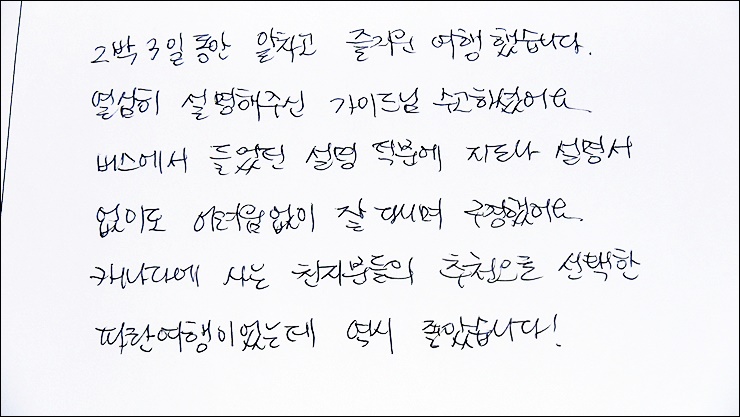 2박 3일 동안 알차고 즐거운 여행 했습니다.
열심히 설명해주신 가이드님 수고하셨어요
버스에서 들었던 설명 덕분에 지도나 설명서
없이도 어려움없이 잘 다니며 구경했어요.
캐나다에 사는 친지분들의 추천으로 선택한
파란여행이었는데 역시 좋았습니다!